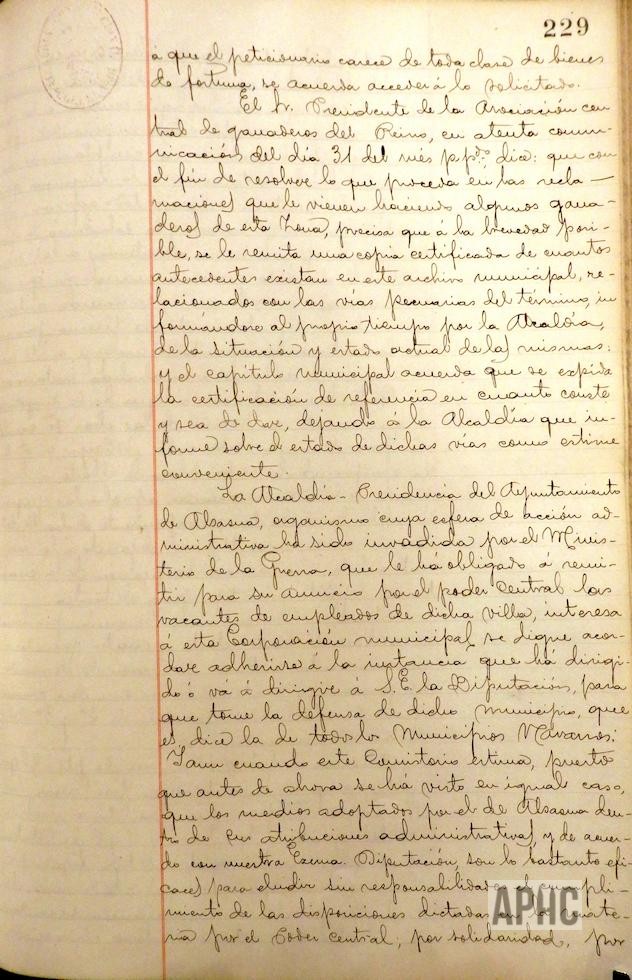 229
á que el peticionario carece de toda clase de bienes
de fortuna, se acuerda acceder á lo solicitado.
El Sr. Presidente de la Asociación cen
tral de ganaderos del Reino, en atenta comu-
nicación del dia 31 del mes p.pdo. dice: que con
el fin de resolver lo que proceda en las recla-
maciones que le vienen haciendo algunos gana-
deros de esta Zona, precisa que á la brevedad posi-
ble, se le remita una copia certificada de cuantos
antecedentes existan en este archivo municipal, re-
lacionados con las vías pecuarias del término, in
formándose al propio tiempo por la Alcaldía,
de la situación y estado actual de las mismas:
y el capítulo municipal acuerda que se expida
la certificación de referencia en cuanto conste
y sea de dar, dejando á la Alcaldía que in-
forme sobre el estado de dichas vías como estime
conveniente.
La Alcaldía-Presidencia del Ayuntamiento
de Alsasua, organismo cuya esfera de acción ad-
ministrativa ha sido invadida por el Minis-
terio de la Guerra, que le há obligado á remi-
tir para su anuncio por el poder central las
vacantes de empleados de dicha villa, interesa
á esta Corporación municipal se digne acor-
dar adherirse á la instancia que há dirigi-
do ó vá á dirigir á S.E. la Diputación, para
que tome la defensa de dicho Municipio, que
es, dice la de todos los Municipios Navarros.
Y aun cuando este Consistorio estima, puesto
que antes de ahora se há visto en igual caso,
que los medios adoptados por el de Alsasua den-
tro de sus atribuciones administrativas y de acuer-
do con nuestra Excma. Diputación, son lo bastante efi-
caces para eludir sin responsabilidades el cumpli-
miento de las disposiciones dictadas en la mate-
ria por el Poder central; por solidaridad, por
APHC